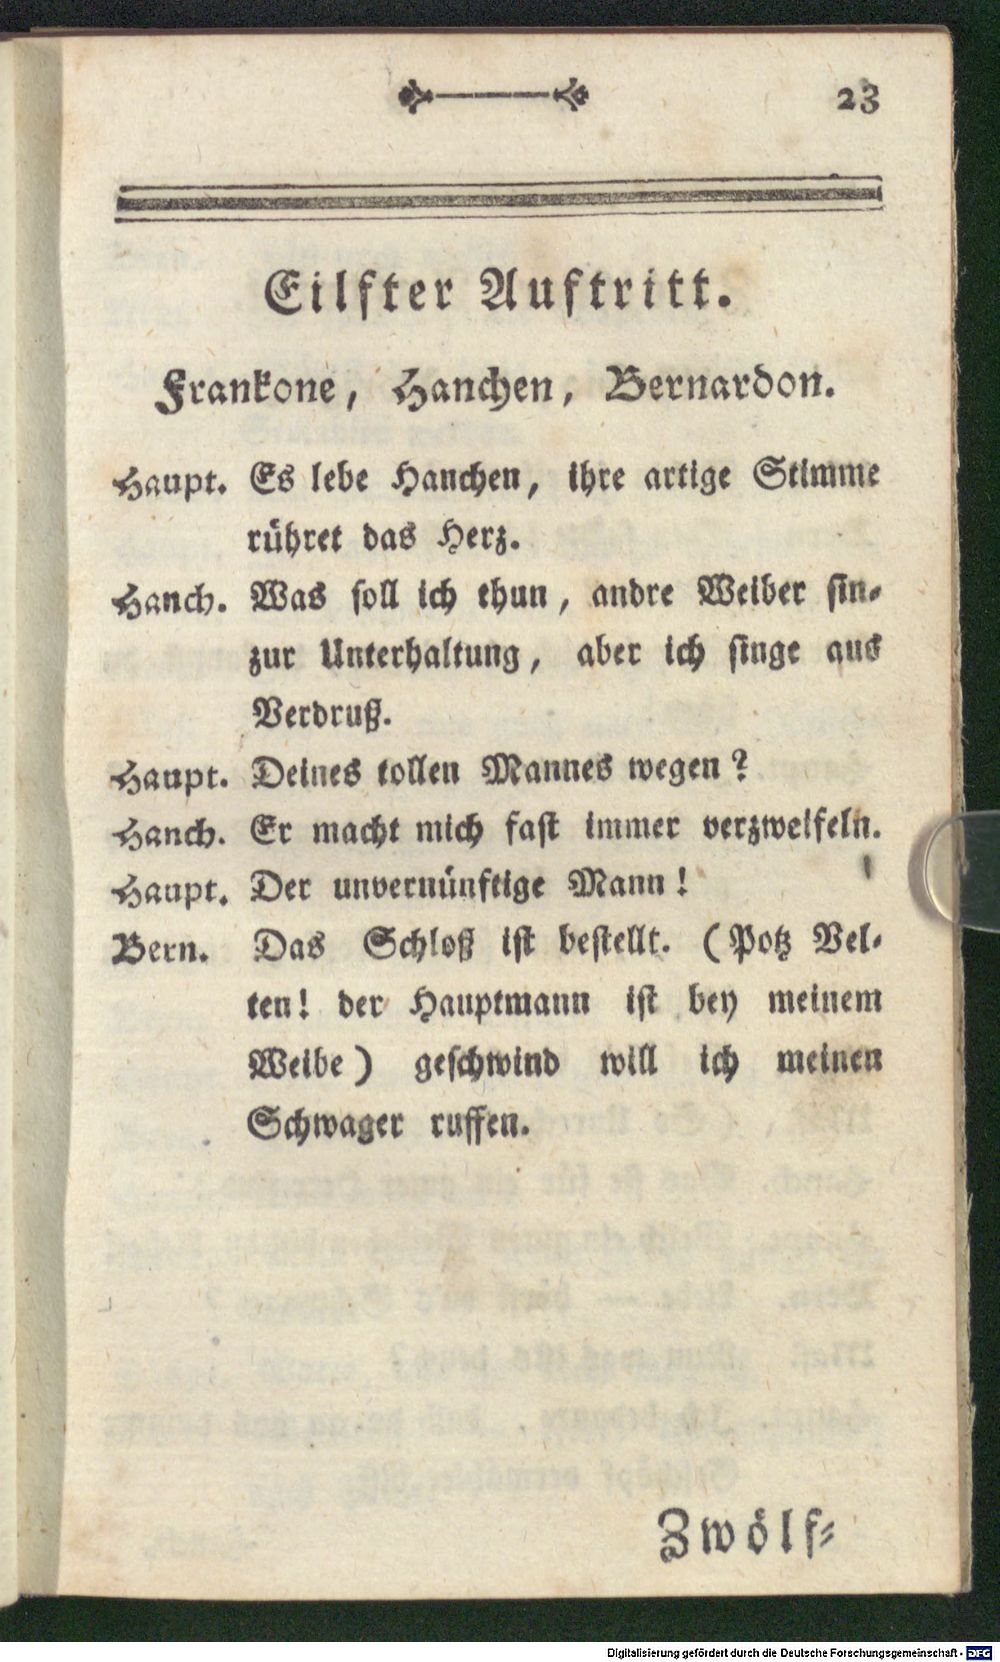 23
Eilfter Auftritt.
Frankone, Hanchen, Bernardon.
Haupt. Es lebe Hanchen, ihre artige Stimme
rühret das Herz.
Hanch. Was soll ich thun, andre Weiber sin-
zur Unterhaltung, aber ich singe aus
Verdruß.
Haupt. Deines tollen Mannes wegen?
Hanch. Er macht mich fast immer verzweifeln.
Haupt. Der unvernünftige Mann!
Bern. Das Schloß ist bestellt. (Potz Vel-
ten! der Hauptmann ist bey meinem
Weibe) geschwind will ich meinen
Schwager ruffen.
Zwölf-
Digitalisierung gefördert durch die Deutsche Forschungsgemeinschaft - DFG